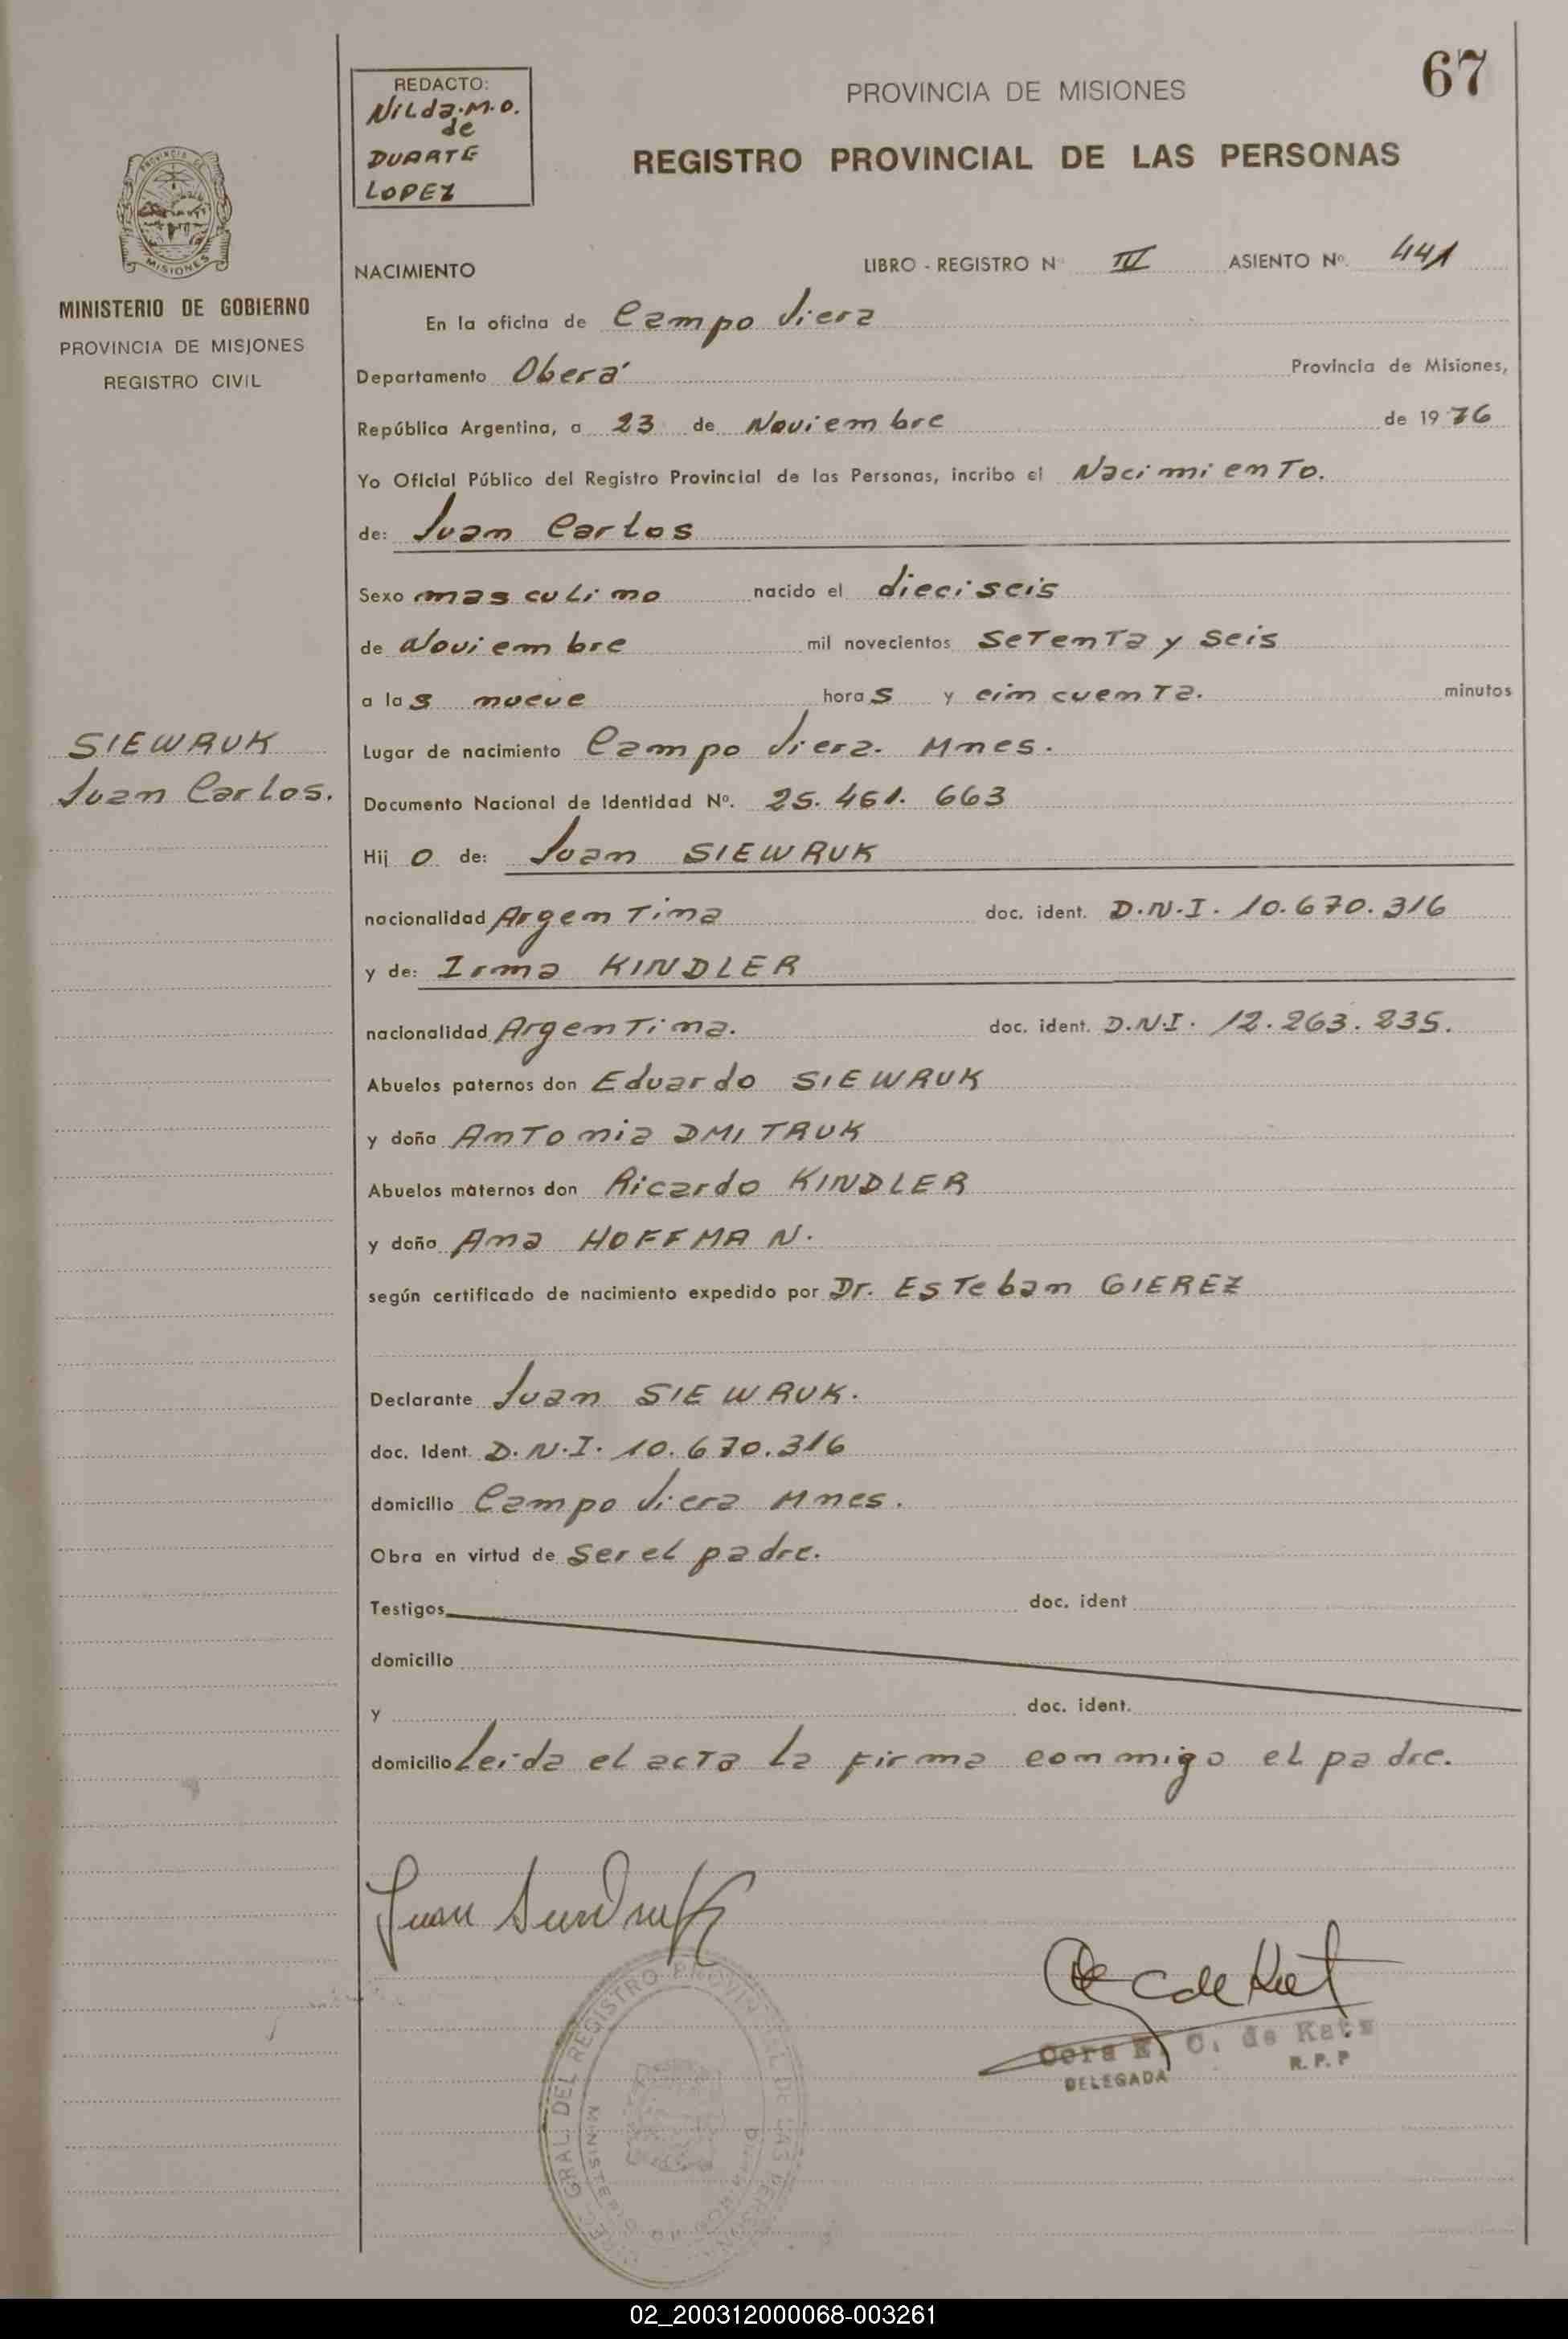 67
REDACTO:
Nilda.M.O.
de
DUARTE
LOPEZ
PROVINCIA DE MISIONES
REGISTRO PROVINCIAL DE LAS PERSONAS
MISIONES
MINISTERIO DE GOBIERNO
PROVINCIA DE MISIONES
REGISTRO CIVIL
NACIMIENTO LIBRO - REGISTRO N° IV ASIENTO Nº. 441
En la oficina de Campo Viera
Departamento Oberá Provincia de Misiones,
República Argentina, a 23 de Noviembre de 1976
Yo Oficial Público del Registro Provincial de las Personas, incribo el Nacimiento.
de: Juan Carlos
Sexo masculino nacido el dieciseis
de Noviembre mil novecientos setenta y seis
a las nueve horas y cincuenta. minutos
SIEWRUK
Juan Carlos.
Lugar de nacimiento Campo Viera. Mnes.
Documento Nacional de Identidad Nº. 25.461.663
Hijo de: Juan SIEWRUK
nacionalidad Argentina doc. ident. D.N.I. 10.670.316
y de: Irma KINDLER
nacionalidad Argentina. doc. ident. D.N.I. 12.263.235.
Abuelos paternos don Eduardo SIEWRUK
y doña Antonia DMITRUK
Abuelos maternos don Ricardo KINDLER
y doña Ana HOFFMAN.
según certificado de nacimiento expedido por Dr. Esteban GIEREZ
Declarante Juan SIEWRUK.
doc. Ident. D.N.I. 10.670.316
domicilio Campo Viera Mnes.
Obra en virtud de ser el padre.
Testigos doc. ident
domicilio
y doc. ident.
domicilio Leida el acta la firma conmigo el padre.
Juan
C de Kat
Cora E. C. de Katz
DELEGADA R.P.P
GRAL. DEL REGISTRO PROVINCIAL DE LAS PERSONAS
02_200312000068-003261